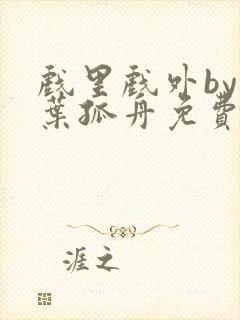 戲里戲外by
葉孤舟免費
涯之